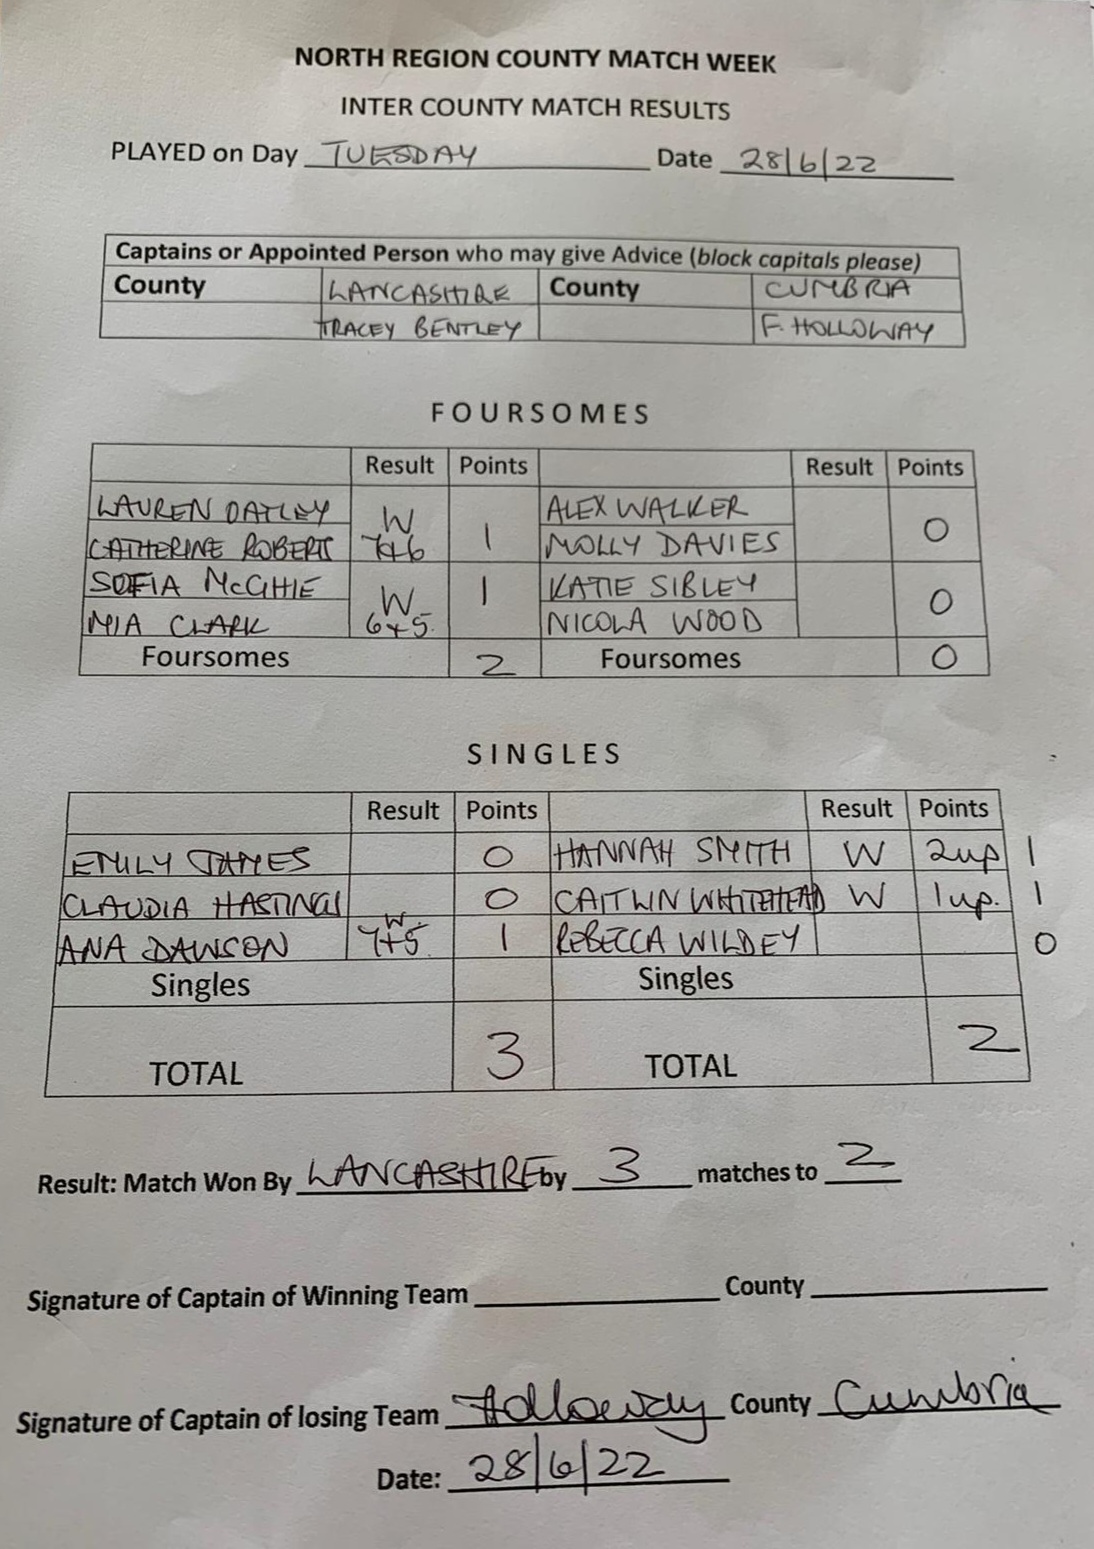 NORTH REGION COUNTY MATCH WEEK
INTER COUNTY MATCH RESULTS
PLAYED on Day TUESDAY Date 28/6/22
Captains or Appointed Person who may give Advice (block capitals please)
County LANCASHIRE County CUMBRIA
TRACEY BENTLEY F. HOLLOWAY
FOURSOMES
Result Points Result Points
LAUREN OATLEY W 1 ALEX WALKER 0
CATHERINE ROBERTS 7+6 MOLLY DAVIES
SOFIA McGHIE W 1 KATIE SIBLEY 0
MIA CLARK 6+5. NICOLA WOOD
Foursomes 2 Foursomes 0
SINGLES
Result Points Result Points
EMILY JAMES 0 HANNAH SMITH W 2up 1
CLAUDIA HASTINGS 0 CAITLIN WHITEHEAD W 1up. 1
ANA DAWSON W 7+5. 1 REBECCA WILDEY 0
Singles Singles
TOTAL 3 TOTAL 2
Result: Match Won By LANCASHIRE by 3 matches to 2
Signature of Captain of Winning Team County
Signature of Captain of losing Team Holloway County Cumbria
Date: 28/6/22